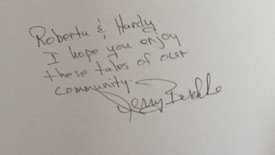 Roberta & Hardy
I hope you enjoy
these tales of our
community.
Jerry